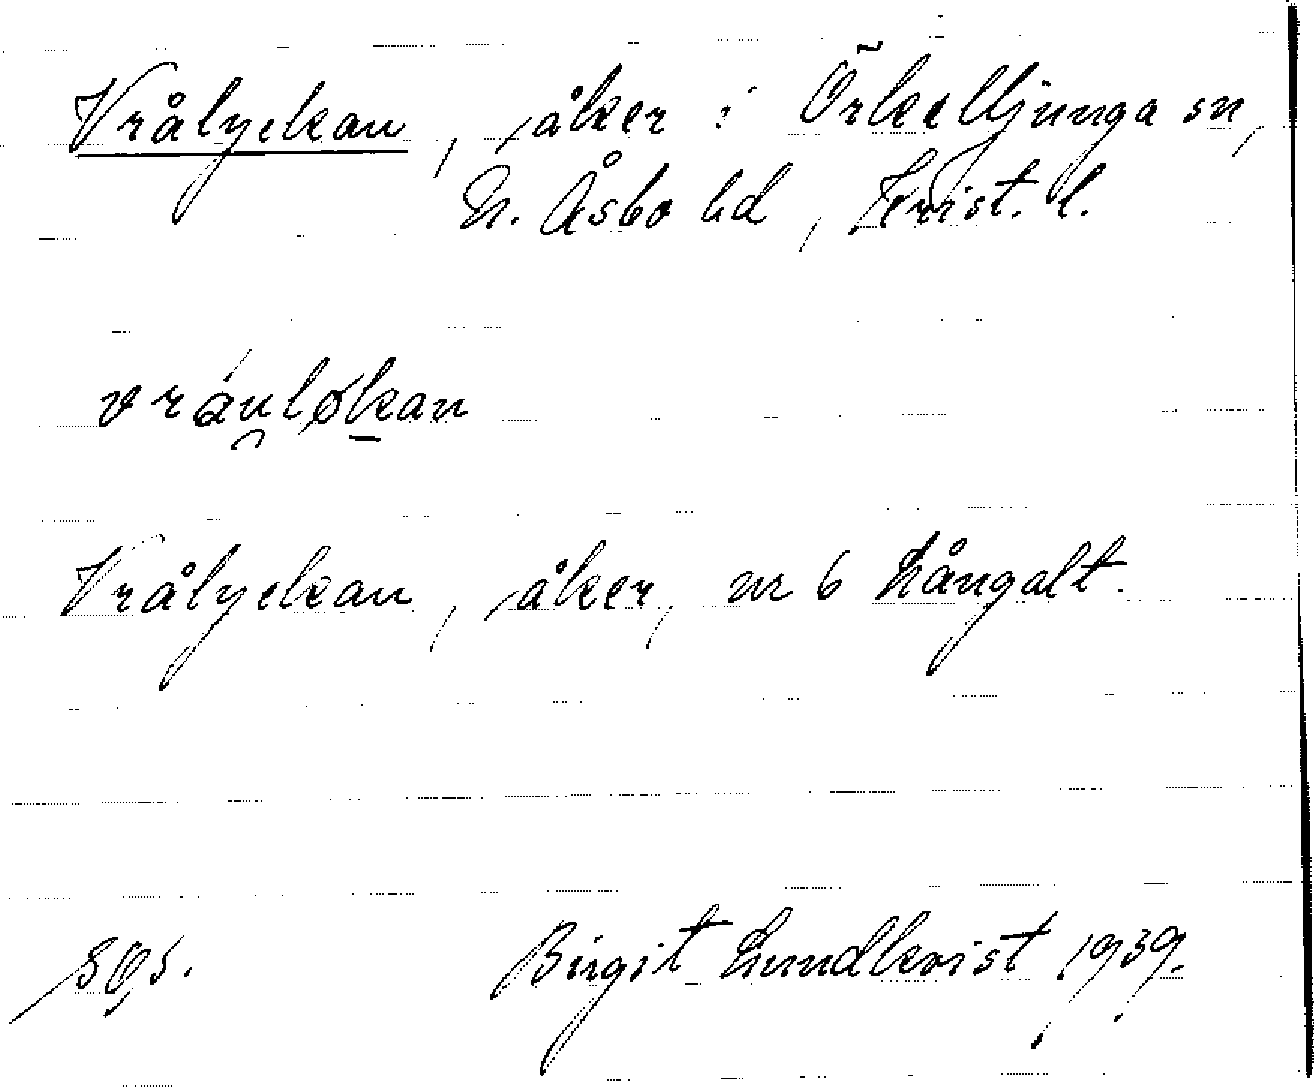 Vrålyckan, åker i Örkelljunga sn,
N. Åsbo hd, Krist. l.
Vrålyckan, åker, nr 6 Långalt.
Birgit Lundkvist 1939.